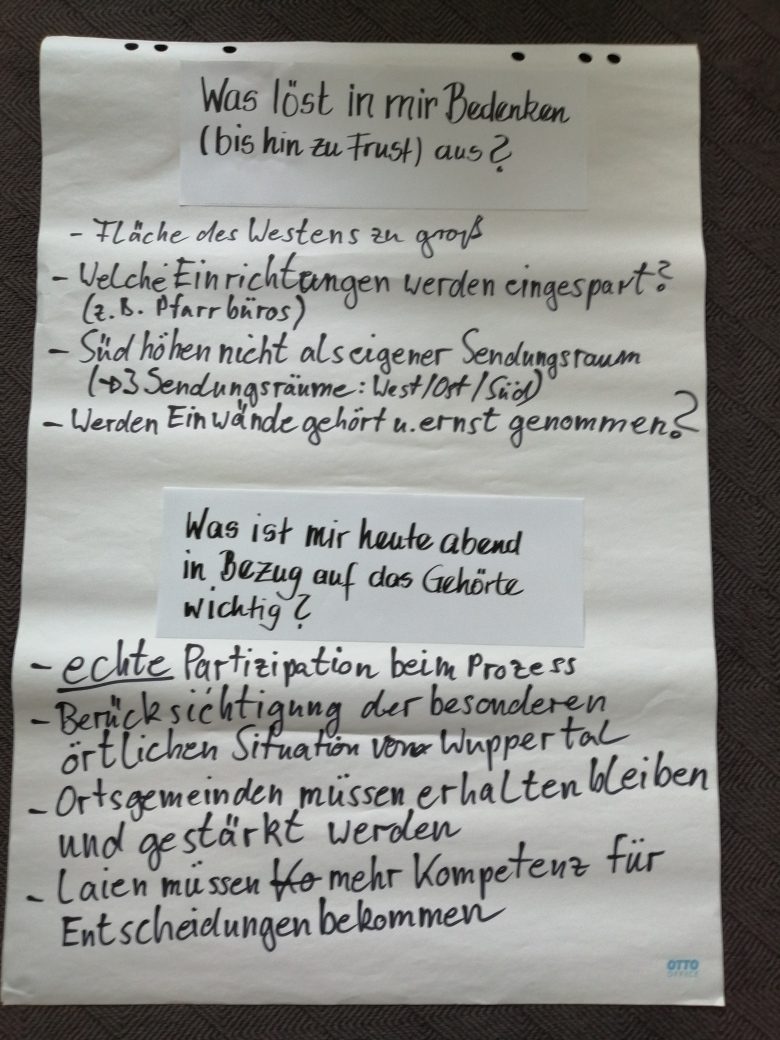 Was löst in mir Bedenken
(bis hin zu Frust) aus?
- Fläche des Westens zu groß
- Welche Einrichtungen werden eingespart?
(z.B. Pfarrbüros)
- Südhöhen nicht als eigener Sendungsraum
(→ 3 Sendungsräume: West/Ost/Süd)
- Werden Einwände gehört u. ernst genommen?
Was ist mir heute abend
in Bezug auf das Gehörte
wichtig?
- echte Partizipation beim Prozess
- Berücksichtigung der besonderen
örtlichen Situation von Wuppertal
- Ortsgemeinden müssen erhalten bleiben
und gestärkt werden
- Laien müssen Ko mehr Kompetenz für
Entscheidungen bekommen
OTTO
OFFICE